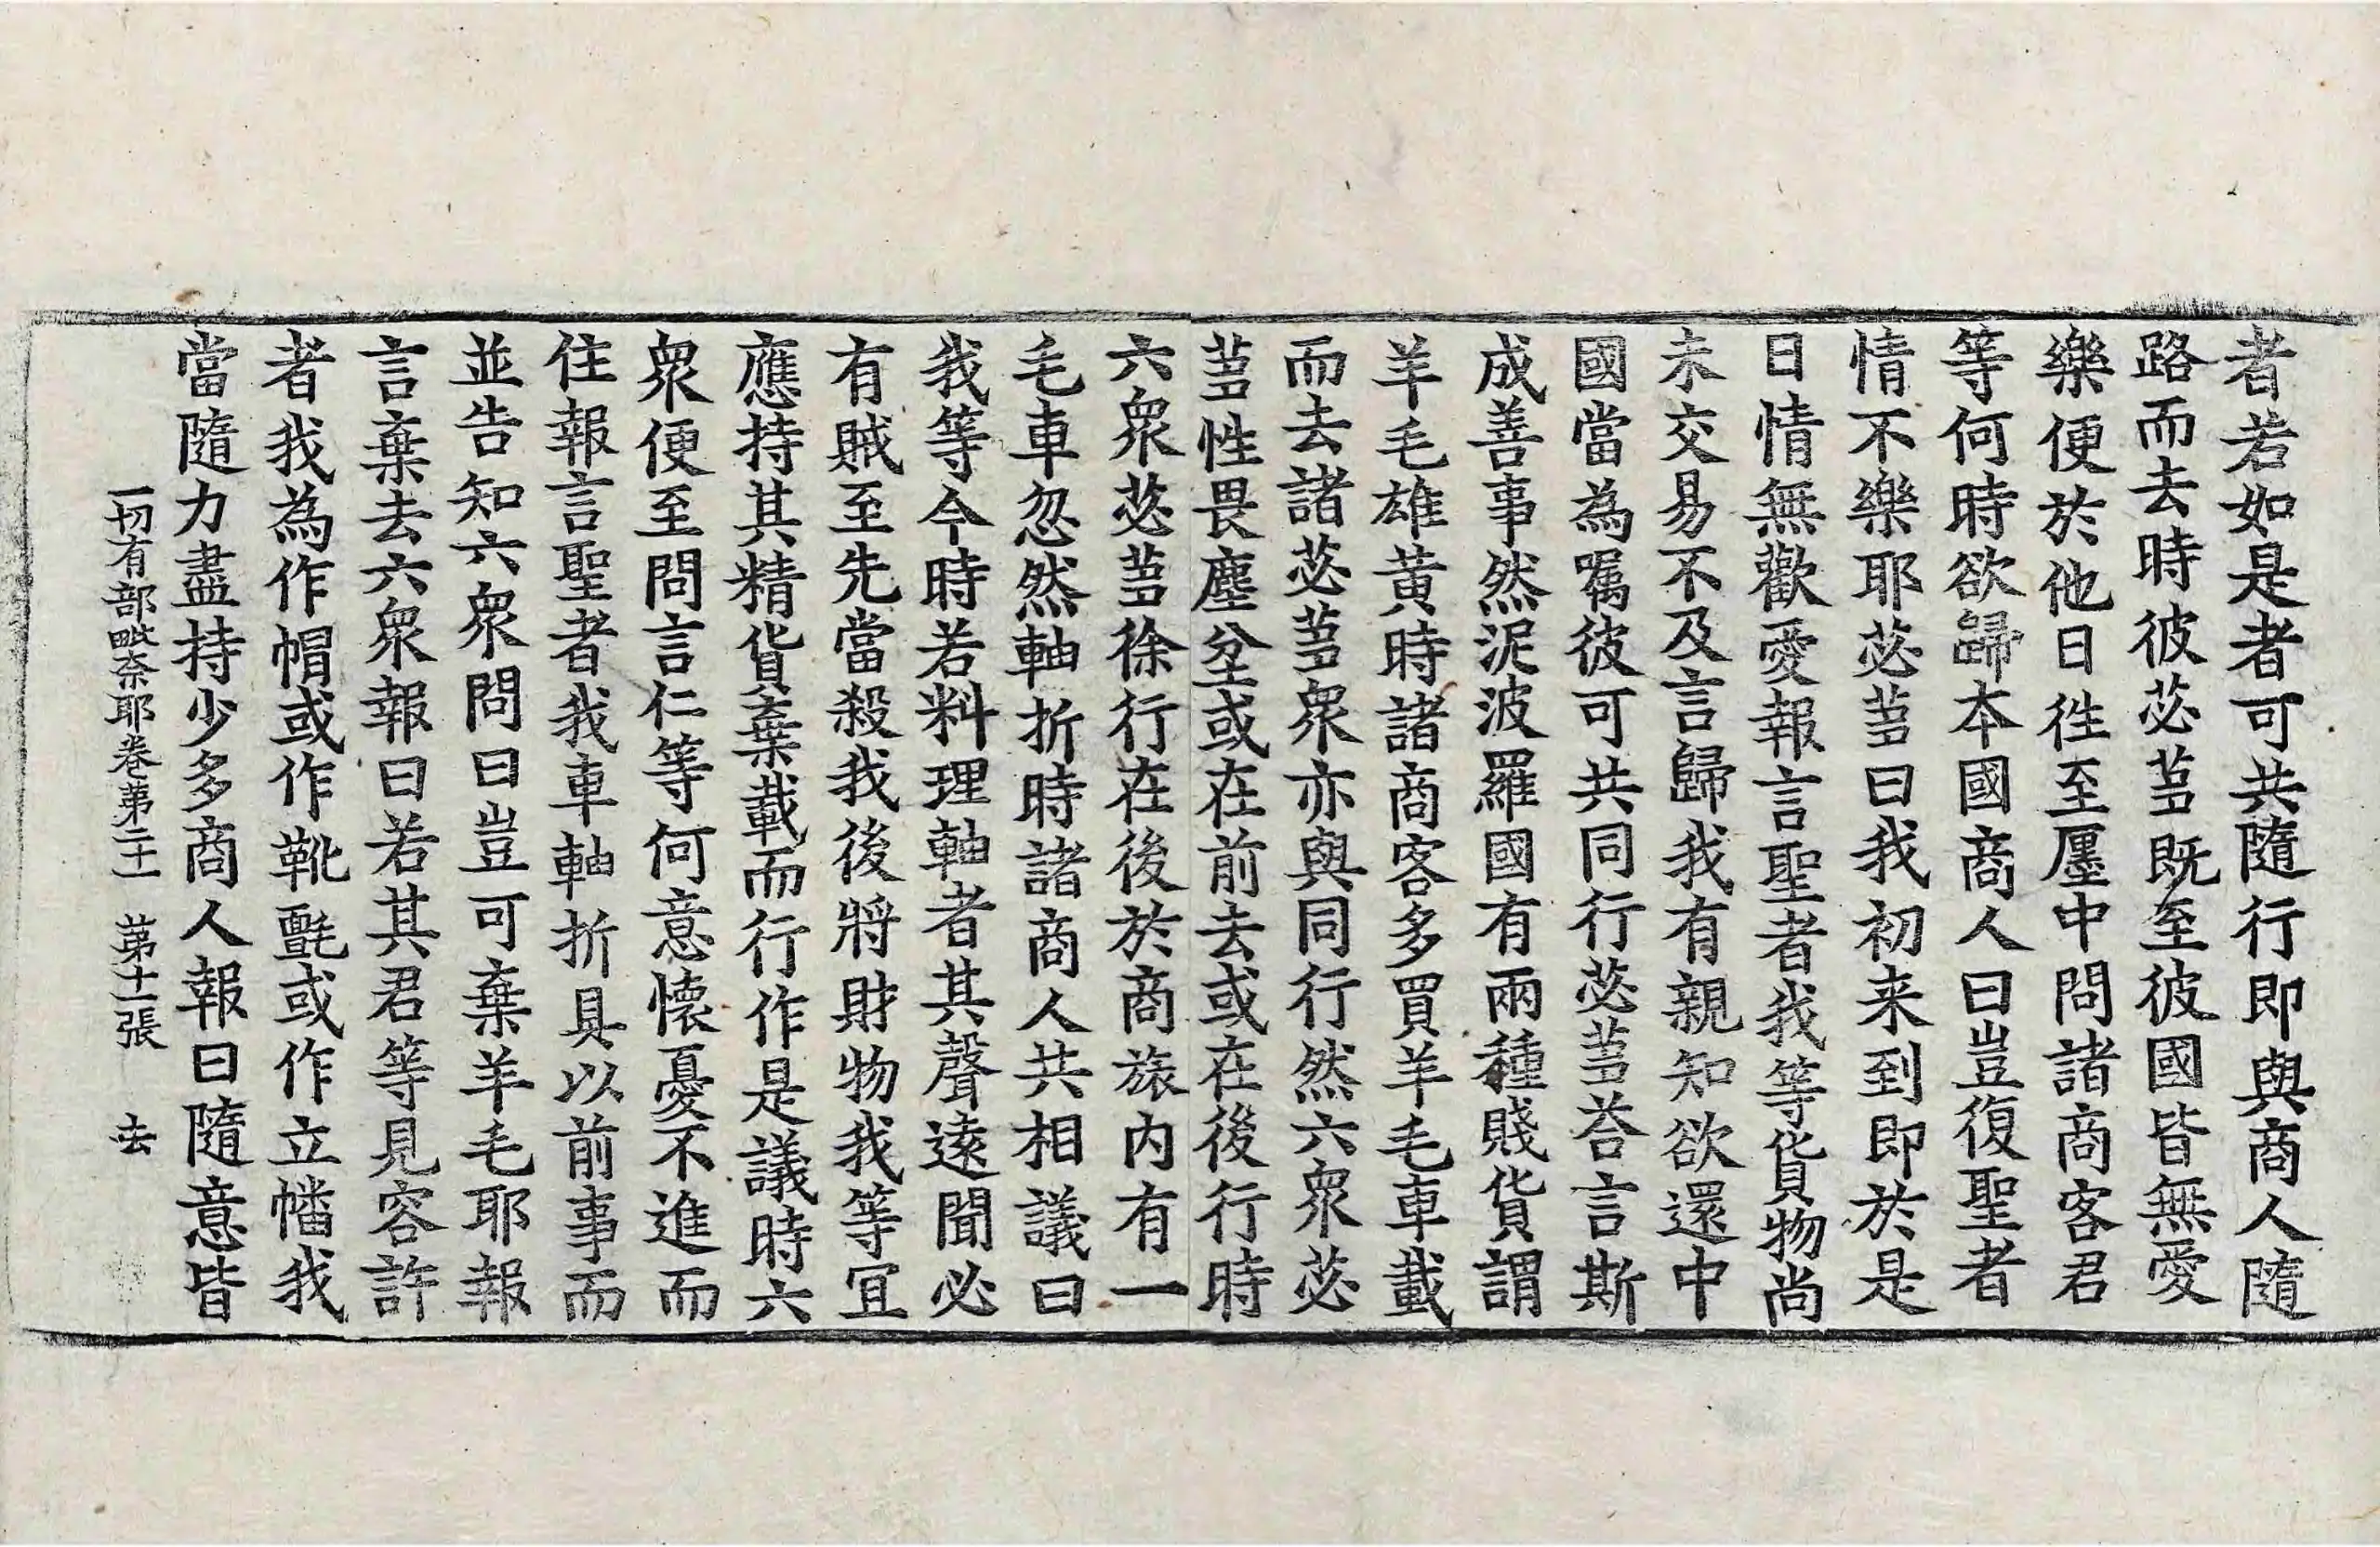 者若如是者可共隨行即與商人隨
路而去時彼苾芻既至彼國皆無愛
樂便於他日徃至㕓中問諸商客君
等何時欲歸本國商人曰豈復聖者
情不樂耶苾芻曰我初来到即於是
日情無歡愛報言聖者我等貨物尚
未交易不及言歸我有親知欲還中
國當為囑彼可共同行苾芻荅言斯
成善事然泥波羅國有兩種賤貨謂
羊毛雄黃時諸商客多買羊毛車載
而去諸苾芻衆亦與同行然六衆苾
芻性畏塵坌或在前去或在後行時
六衆苾芻徐行在後於商旅内有一
毛車忽然軸折時諸商人共相議曰
我等今時若料理軸者其聲遠聞必
有賊至先當殺我後將財物我等宜
應持其精貨棄載而行作是議時六
衆便至問言仁等何意懷憂不進而
住報言聖者我車軸折具以前事而
並告知六衆問曰豈可棄羊毛耶報
言棄去六衆報曰若其君等見容許
者我為作帽或作靴氈或作立幡我
當隨力盡持少多商人報曰隨意皆
一切有部毗奈耶卷第二十一　第十一張　去